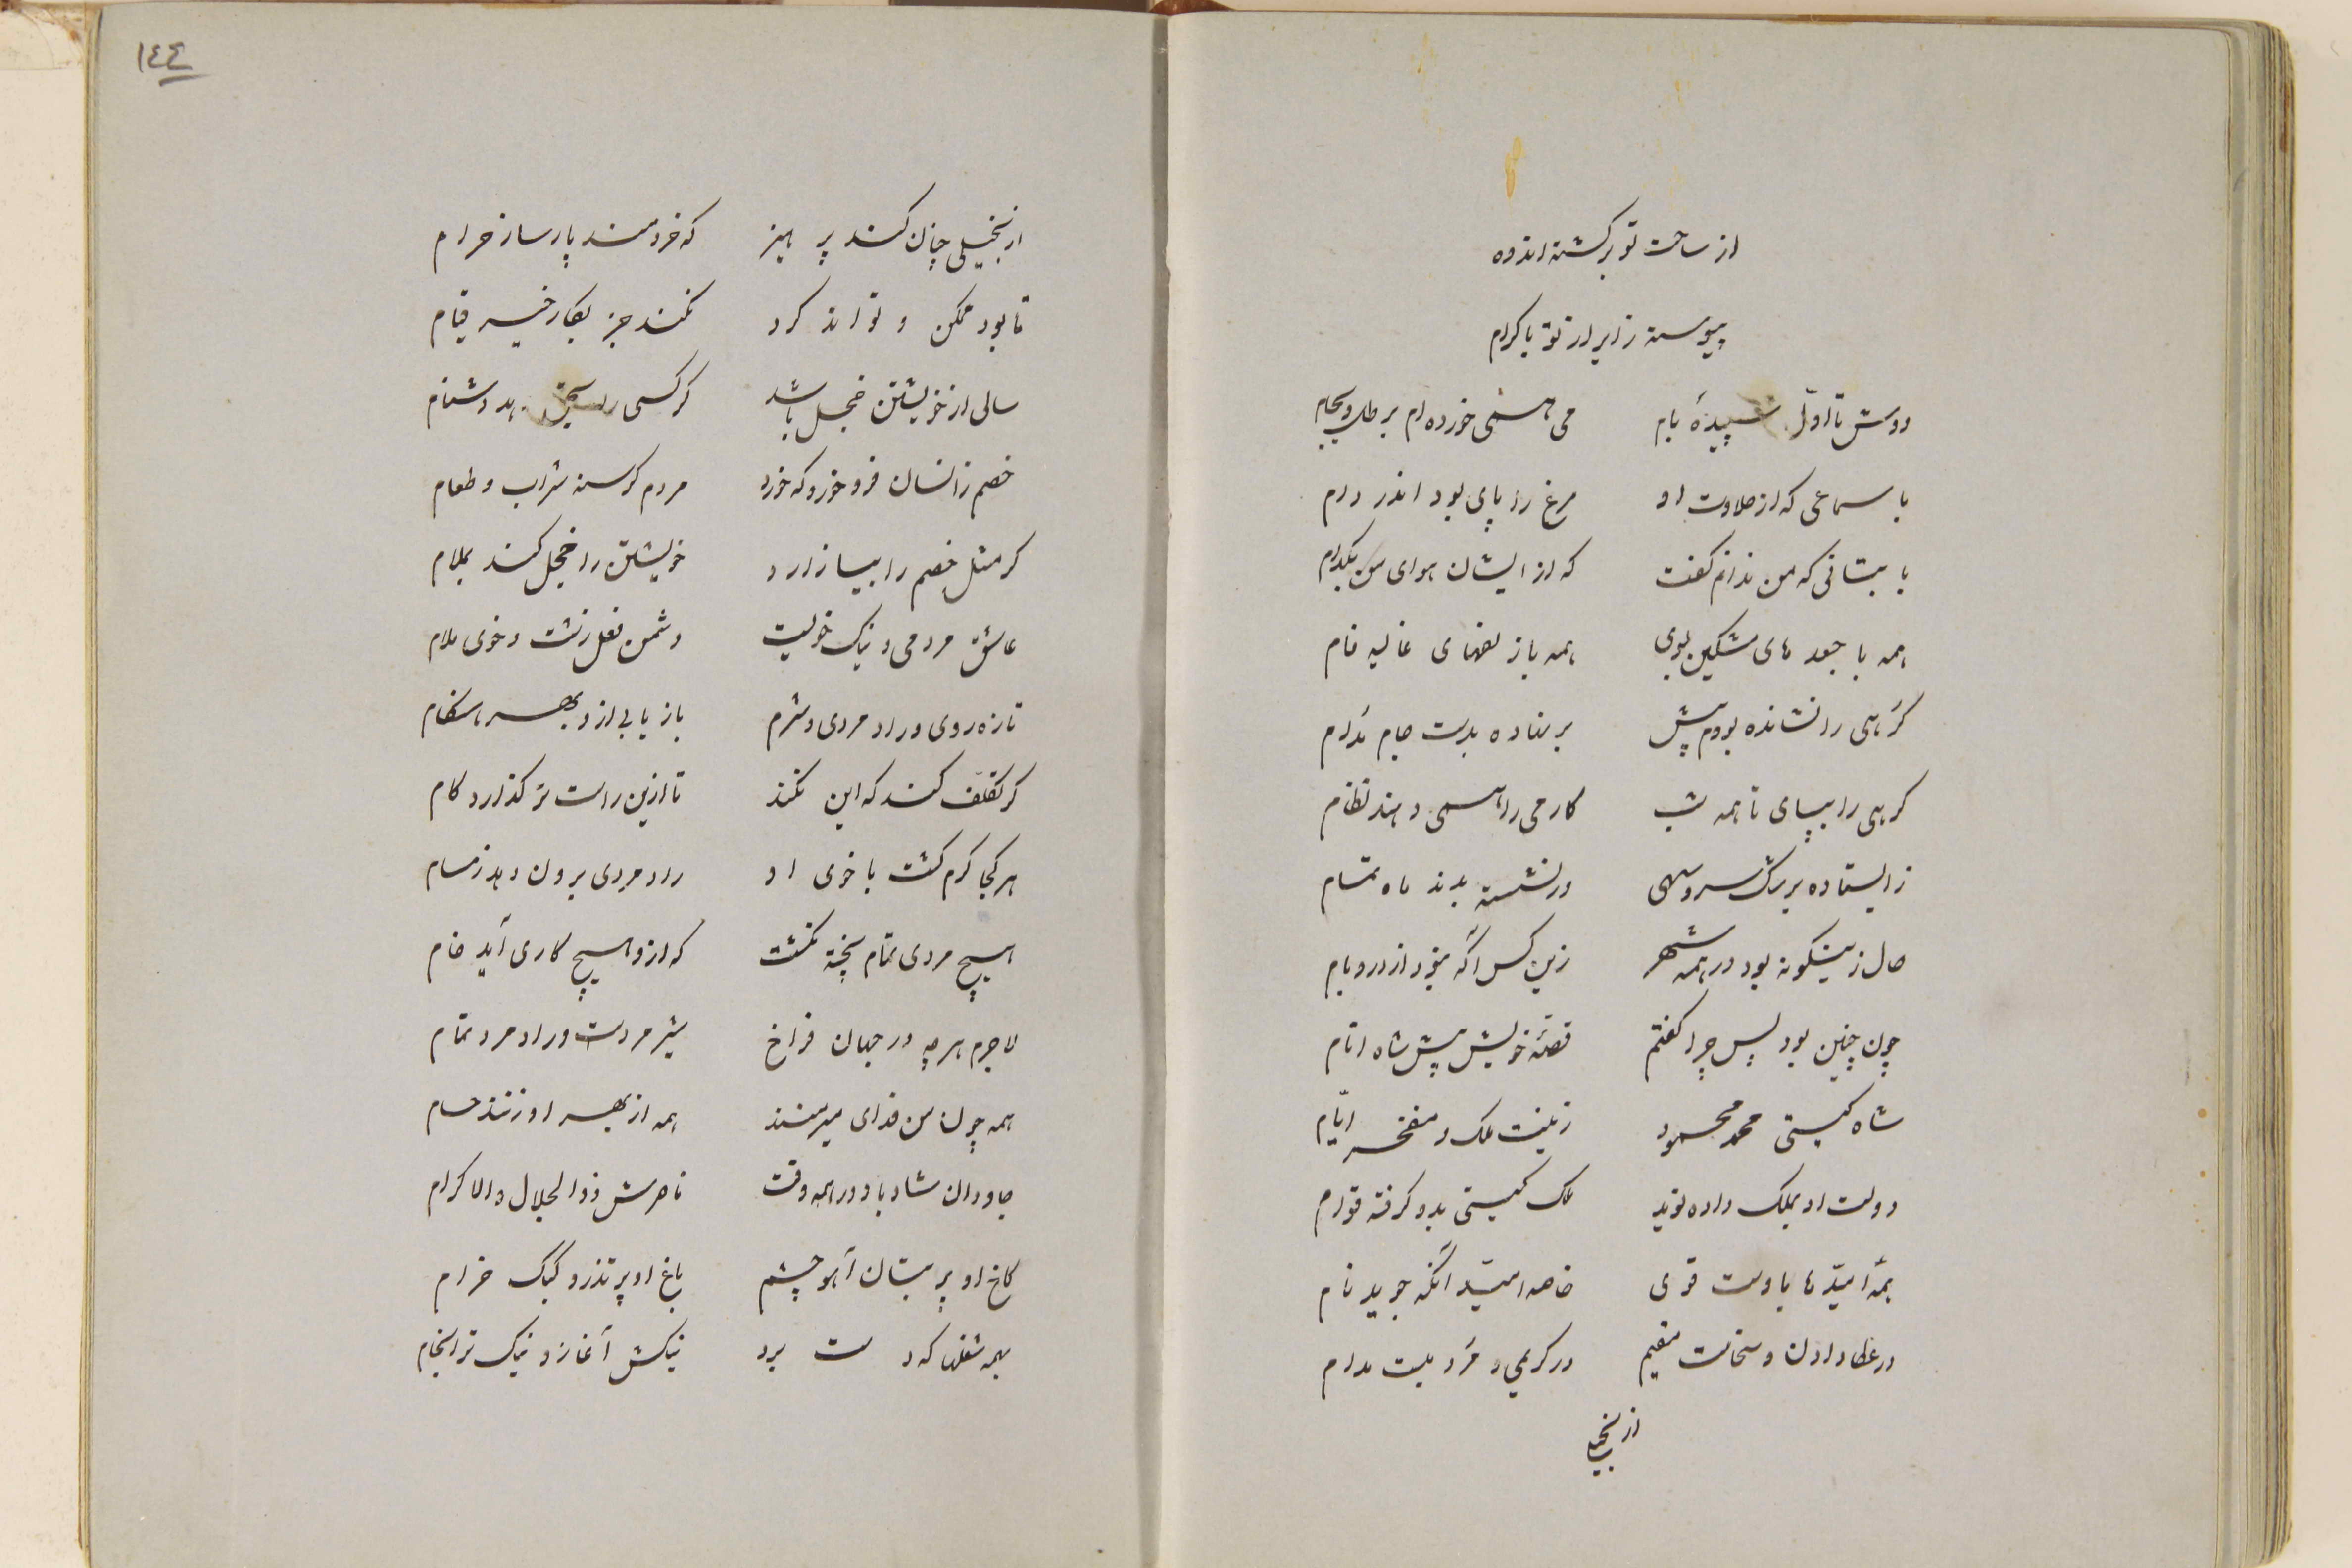 از ساحت تو برگشته اندوه
پیوسته زایر از تو با کرام
دوش تا اوّل سپیدهٔ بام می همی خورده ام برطل و بجام
با سماعی که از حلاوت او مرغ را پای بود اندر دام
با بتانی که من ندانم گفت که از ایشان هوای من بکدام
همه با جعد های مشکین بوی همه با زلفهای غالیه فام
گرهی را نشانده بودم پیش برنهاده بدست جام مدام
گرهی را بپای تا همه شب کار می را همی دهند نظام
زایستاده برشک سرو سهی ورنشسته بدند ماه تمام
حال زینگونه بود در همه شهر زین کس آگه نبود از در و بام
چون چنین بود پس چرا گفتم قصّهٔ خویش پیش شاه انام
شاه گیتی محمد محمود زینت ملک و مفخر ایّام
دولت او بملک داده نوید ملک گیتی بدو گرفته قوام
همهٔ امیّد ها باوست قوی خاصه امیّد آنکه جوید نام
در عطا دادن و سخاست مقیم در کریمی و مردمیست مدام
از بخیلی
١٤٤
از بخیلی چنان کند پرهیز که خردمند پارسا ز حرام
تا بود ممکن و تواند کرد نکند جز بکار خیر قیام
سالی از خویشتن خجل باشد گر کسی را دهد دشنام
خصم زانسان فرو خورد که خورد مردم گرسنه شراب و طعام
گر مثل خصم را بیازارد خویشتن را خجل کند بملام
عاشق مردمی و نیک خوئیست دشمن فعل زشت و خوی ملام
تازه روی و راد مردی و شرم باز یابی ازو بهر هنگام
گر تکلف کند که این نکند تا ازین راست تر گذارد گام
هر کجا گرم گشت با خوی او راد مردی برون دهد ز مسام
هیچ مردی تمام پخته نگشت که ازو هیچ کاری آید خام
لاجرم هرچه در جهان فراخ شیر مردست و راد مرد تمام
همه چون من فدای میر منند همه از بهر او زنند حسام
جاودان شاد باد در همه وقت ناصرش ذوالجلال والاکرام
کاخ او پر بتان آهو چشم باغ او پر تذرو کبک خرام
بهمه شغلها که دست برد نیکش آغاز و نیک تر انجام